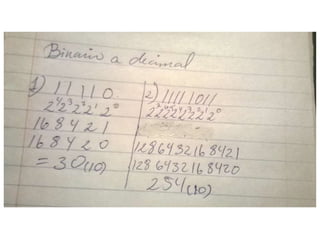 Binario a decimal
1) 11110
2⁴2³2²2¹2⁰
168421
168420
=30(10)
2) 11111011
1286432168421
1286432168420
254(10)